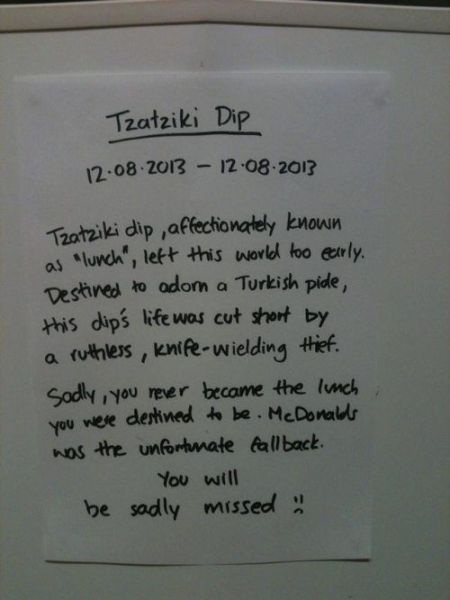 Tzatziki Dip
12.08.2013 - 12.08.2013
Tzatziki dip, affectionately known
as "lunch", left this world too early.
Destined to adorn a Turkish pide,
this dip's life was cut short by
a ruthless, knife-wielding thief.
Sadly, you never became the lunch
you were destined to be. McDonalds
was the unfortunate fallback.
You will
be sadly missed :(